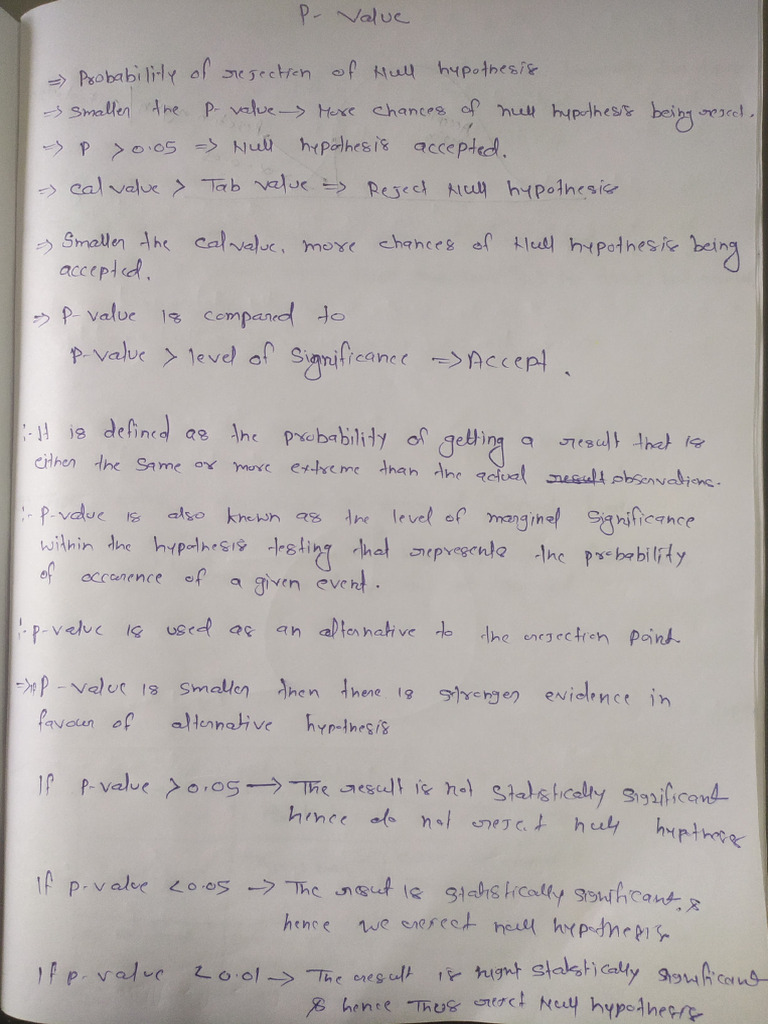 P- Value
⇒ Probability of rejection of Null hypothesis
⇒ Smaller the P-value → More chances of null hypothesis being reject.
⇒ P > 0.05 ⇒ Null hypothesis accepted.
⇒ Cal value > Tab value ⇒ Reject Null hypothesis
⇒ Smaller the Cal value, more chances of Null hypothesis being
accepted.
⇒ P-value is compared to
P-value > level of Significance ⇒ Accept.
:- It is defined as the probability of getting a result that is
either the same or more extreme than the actual result observations.
:- P-value is also known as the level of marginal significance
within the hypothesis testing that represents the probability
of occarence of a given event.
:- P-value is used as an alternative to the rejection point
⇒ P-value is smaller then there is stronger evidence in
favour of alternative hypothesis
If P-value > 0.05 → The result is not statistically significant
hence do not reject null hypthesis
If p-value < 0.05 → The result is statistically significant &
hence we reject null hypothesis
If p-value < 0.01 → The result is statistically significant
& hence reject Null hypothesis